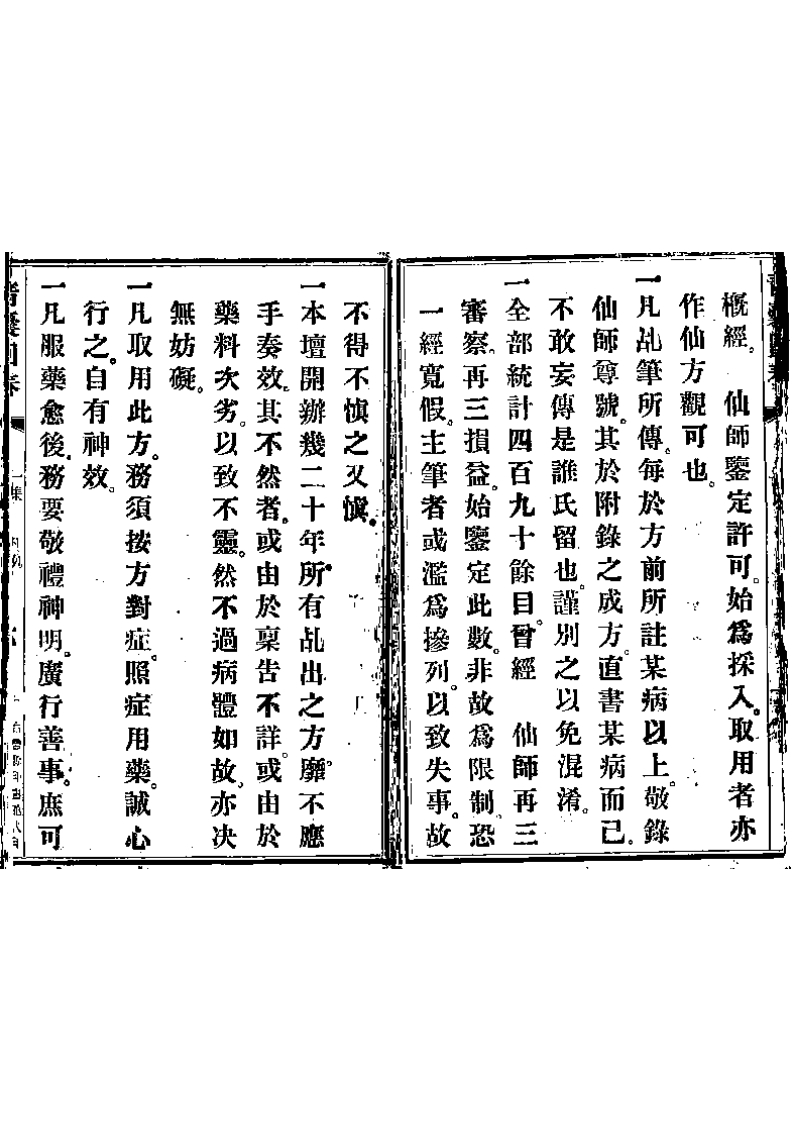 概經。　仙師鑒定許可。始爲採入。取用者亦
作仙方觀可也。
一凡乩筆所傳。每於方前所註某病以上。敬錄
仙師尊號。其於附錄之成方。直書某病而已。
不敢妄傳是誰氏留也。謹別之以免混淆。
一全部統計四百九十餘目。曾經　仙師再三
審察。再三損益。始鑒定此數。非故爲限制。恐
一經寬假。主筆者或濫爲摻列。以致失事。故
不得不愼之又愼。
一本壇開辦幾二十年。所有乩出之方。靡不應
手奏效。其不然者。或由於稟吿不詳。或由於
藥料次劣。以致不靈。然不過病體如故。亦决
無妨礙。
一凡取用此方。務須按方對症。照症用藥。誠心
行之。自有神效。
一凡服藥愈後。務要敬禮神明。廣行善事。庶可